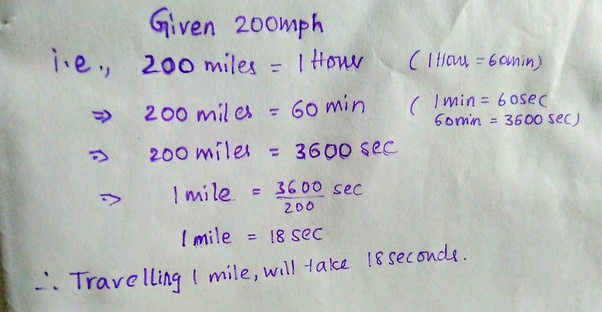 Given 200mph
i.e., 200 miles = 1 Hour (1 Hour = 60min)
⇒ 200 miles = 60 min ( 1 min = 60sec
60min = 3600 sec)
⇒ 200 miles = 3600 sec
⇒ 1 mile = 3600/200 sec
1 mile = 18 sec
∴ Travelling 1 mile, will take 18 seconds.